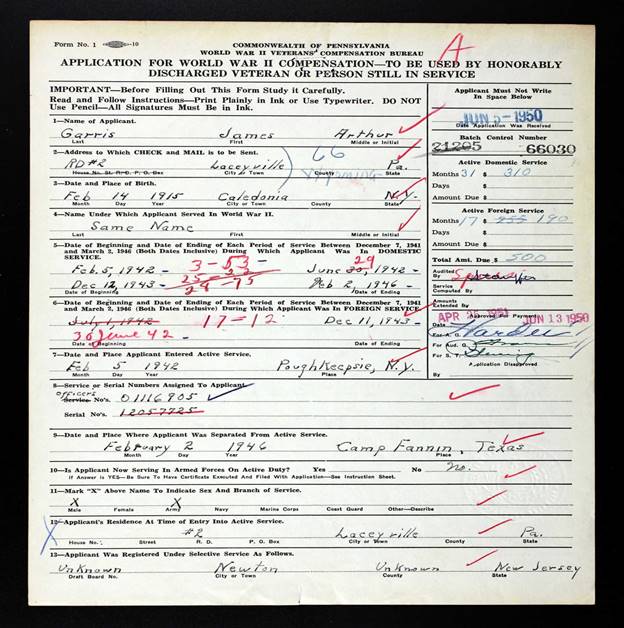 Form No. 1 -10
COMMONWEALTH OF PENNSYLVANIA
WORLD WAR II VETERANS' COMPENSATION BUREAU
A
APPLICATION FOR WORLD WAR II COMPENSATION—TO BE USED BY HONORABLY
DISCHARGED VETERAN OR PERSON STILL IN SERVICE
IMPORTANT—Before Filling Out This Form Study it Carefully.
Read and Follow Instructions—Print Plainly in Ink or Use Typewriter. DO NOT
Use Pencil—All Signatures Must be in Ink.
Applicant Must Not Write
In Space Below
JUN 5-1950
Date Application Was Received
Batch Control Number
21205 66030
1—Name of Applicant.
Garris James Arthur
Last First Middle or Initial
2—Address to Which CHECK and MAIL is to be Sent.
66
RD#2 Laceyville Wyoming Pa.
House No. St. R.D. P.O. Box City or Town County State
3—Date and Place of Birth.
Feb 14 1915 Caledonia N.Y.
Month Day Year City or Town State
4—Name Under Which Applicant Served In World War II.
Same Name
Last First Middle or Initial
5—Date of Beginning and Date of Ending of Each Period of Service Between December 7, 1941
and March 2, 1946 (Both Dates Inclusive) During Which Applicant Was In DOMESTIC
SERVICE.
Feb. 5, 1942 - 3-53 June 30, 1942 - 29
25 23
Dec 12, 1943 - 28-75 Feb 2, 1946 -
Date of Beginning Date of Ending
6—Date of Beginning and Date of Ending of Each Period of Service Between December 7, 1941
and March 2, 1946 (Both Dates Inclusive) During Which Applicant Was In FOREIGN SERVICE
July 1, 1942 17-12 Dec 11, 1943 -
30 June 42
Date of Beginning Date of Ending
7—Date and Place Applicant Entered Active Service.
Feb 5 1942 Poughkeepsie, N.Y.
Month Day Year Place
Active Domestic Service
Months 31 $ 310
Days $
Amount Due $
Active Foreign Service
Months 17 $ 255 190
Days $
Amount Due $
Total Amt. Due $ 500
Audited By
Service Computed by
Amounts Extended By
APR 1951
Approved for Payment
JUN 13 1950
For A. G.
For Aud. G.
For S. T.
Application Disapproved
By
8—Service or Serial Numbers Assigned To Applicant.
officers
Service No's. 01116905
Serial No's. 12057725
9—Date and Place Where Applicant Was Separated From Active Service.
February 2 1946 Camp Fannin, Texas
Month Day Year Place
10—Is Applicant Now Serving In Armed Forces On Active Duty? Yes No no.
If Answer is YES—Be Sure To Have Certificate Executed And Filed With Application—See Instruction Sheet.
11—Mark "X" Above Name To Indicate Sex And Branch of Service.
X X
Male Female Army Navy Marine Corps Coast Guard Other—Describe
X
12—Applicant's Residence At Time of Entry Into Active Service.
#2 Laceyville Pa.
House No. Street R. D. P. O. Box City or Town County State
13—Applicant Was Registered Under Selective Service As Follows.
Unknown Newton Unknown New Jersey
Draft Board No. City or Town County State